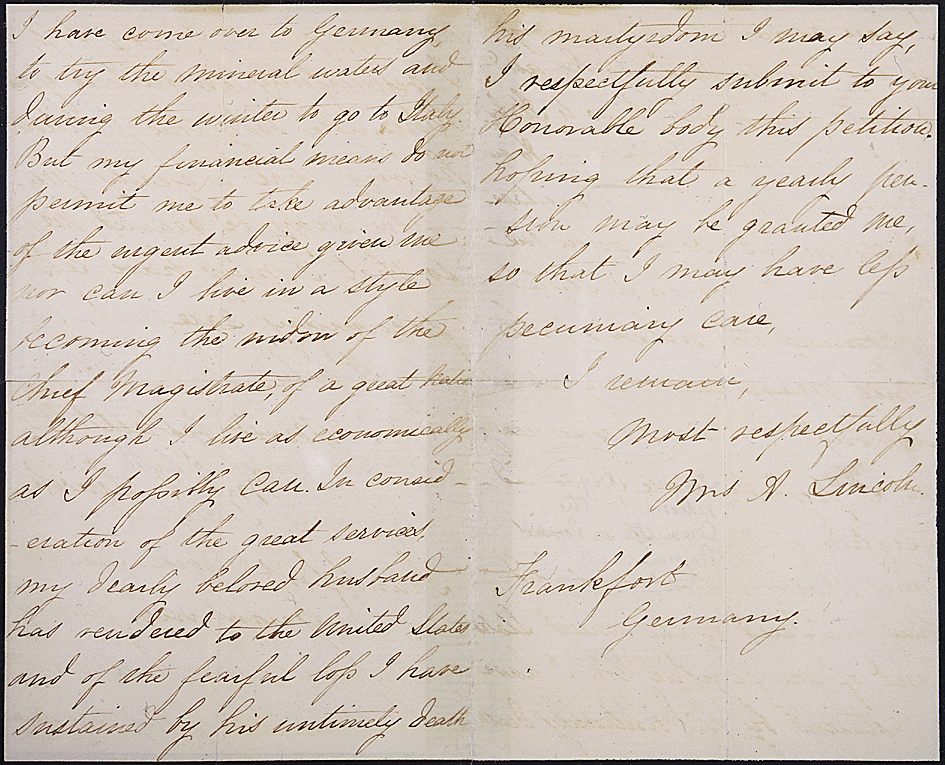 I have come over to Germany,
to try the mineral waters and
during the winter to go to Italy.
But my financial means do not
permit me to take advantage
of the urgent advice given me
nor can I live in a style
becoming the widow of the
Chief Magistrate, of a great Nation
although I live as economically
as I possibly can. In consid-
-eration of the great services,
my dearly beloved husband
has rendered to the United States
and of the fearful loss I have
sustained by his untimely death
his martyrdom I may say,
I respectfully submit to your
Honorable body this petition.
hoping that a yearly pen-
-sion may be granted me,
so that I may have less
pecuniary care,
I remain,
Most respectfully
Mrs A. Lincoln.
Frankfort
Germany.